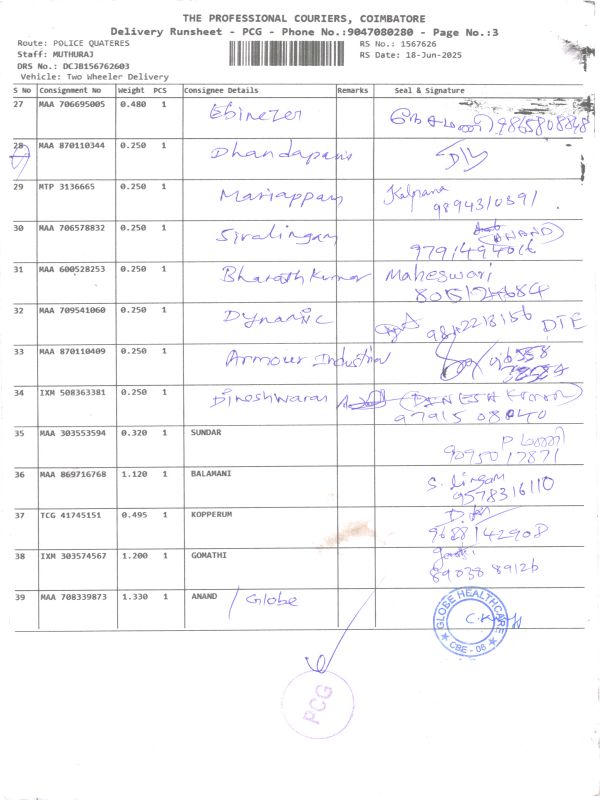 THE PROFESSIONAL COURIERS, COIMBATORE
Delivery Runsheet - PCG - Phone No.:9047080280 - Page No.:3
Route: POLICE QUATERES
RS No.: 1567626
Staff: MUTHURAJ
RS Date: 18-Jun-2025
DRS No.: DCJB156762603
Vehicle: Two Wheeler Delivery
S No Consignment No Weight PCS Consignee Details Remarks Seal & Signature
27 MAA 706695005 0.480 1 Ebinezer 9865808848
28 MAA 870110344 0.250 1 Dhandapani D/L
29 MTP 3136665 0.250 1 Mariappan Kalpana
9894310391
30 MAA 706578832 0.250 1 Sivalingam ANAND
9791494016
31 MAA 600528253 0.250 1 Bharath Kumar Maheswari
8015124684
32 MAA 709541060 0.250 1 Dynamic 9842213156 DTE
33 MAA 870110409 0.250 1 Armour Industrial
34 IXM 508363381 0.250 1 Dineshwaran DINESH KUMAR
97915 08040
35 MAA 303553594 0.320 1 SUNDAR P மணி
9095017871
36 MAA 869716768 1.120 1 BALAMANI S. Lingam
9578316110
37 TCG 41745151 0.495 1 KOPPERUM
9688142908
38 IXM 303574567 1.200 1 GOMATHI
89038 89126
39 MAA 708339873 1.330 1 ANAND / Globe GLOBE HEALTHCARE
CBE - 06
PCG